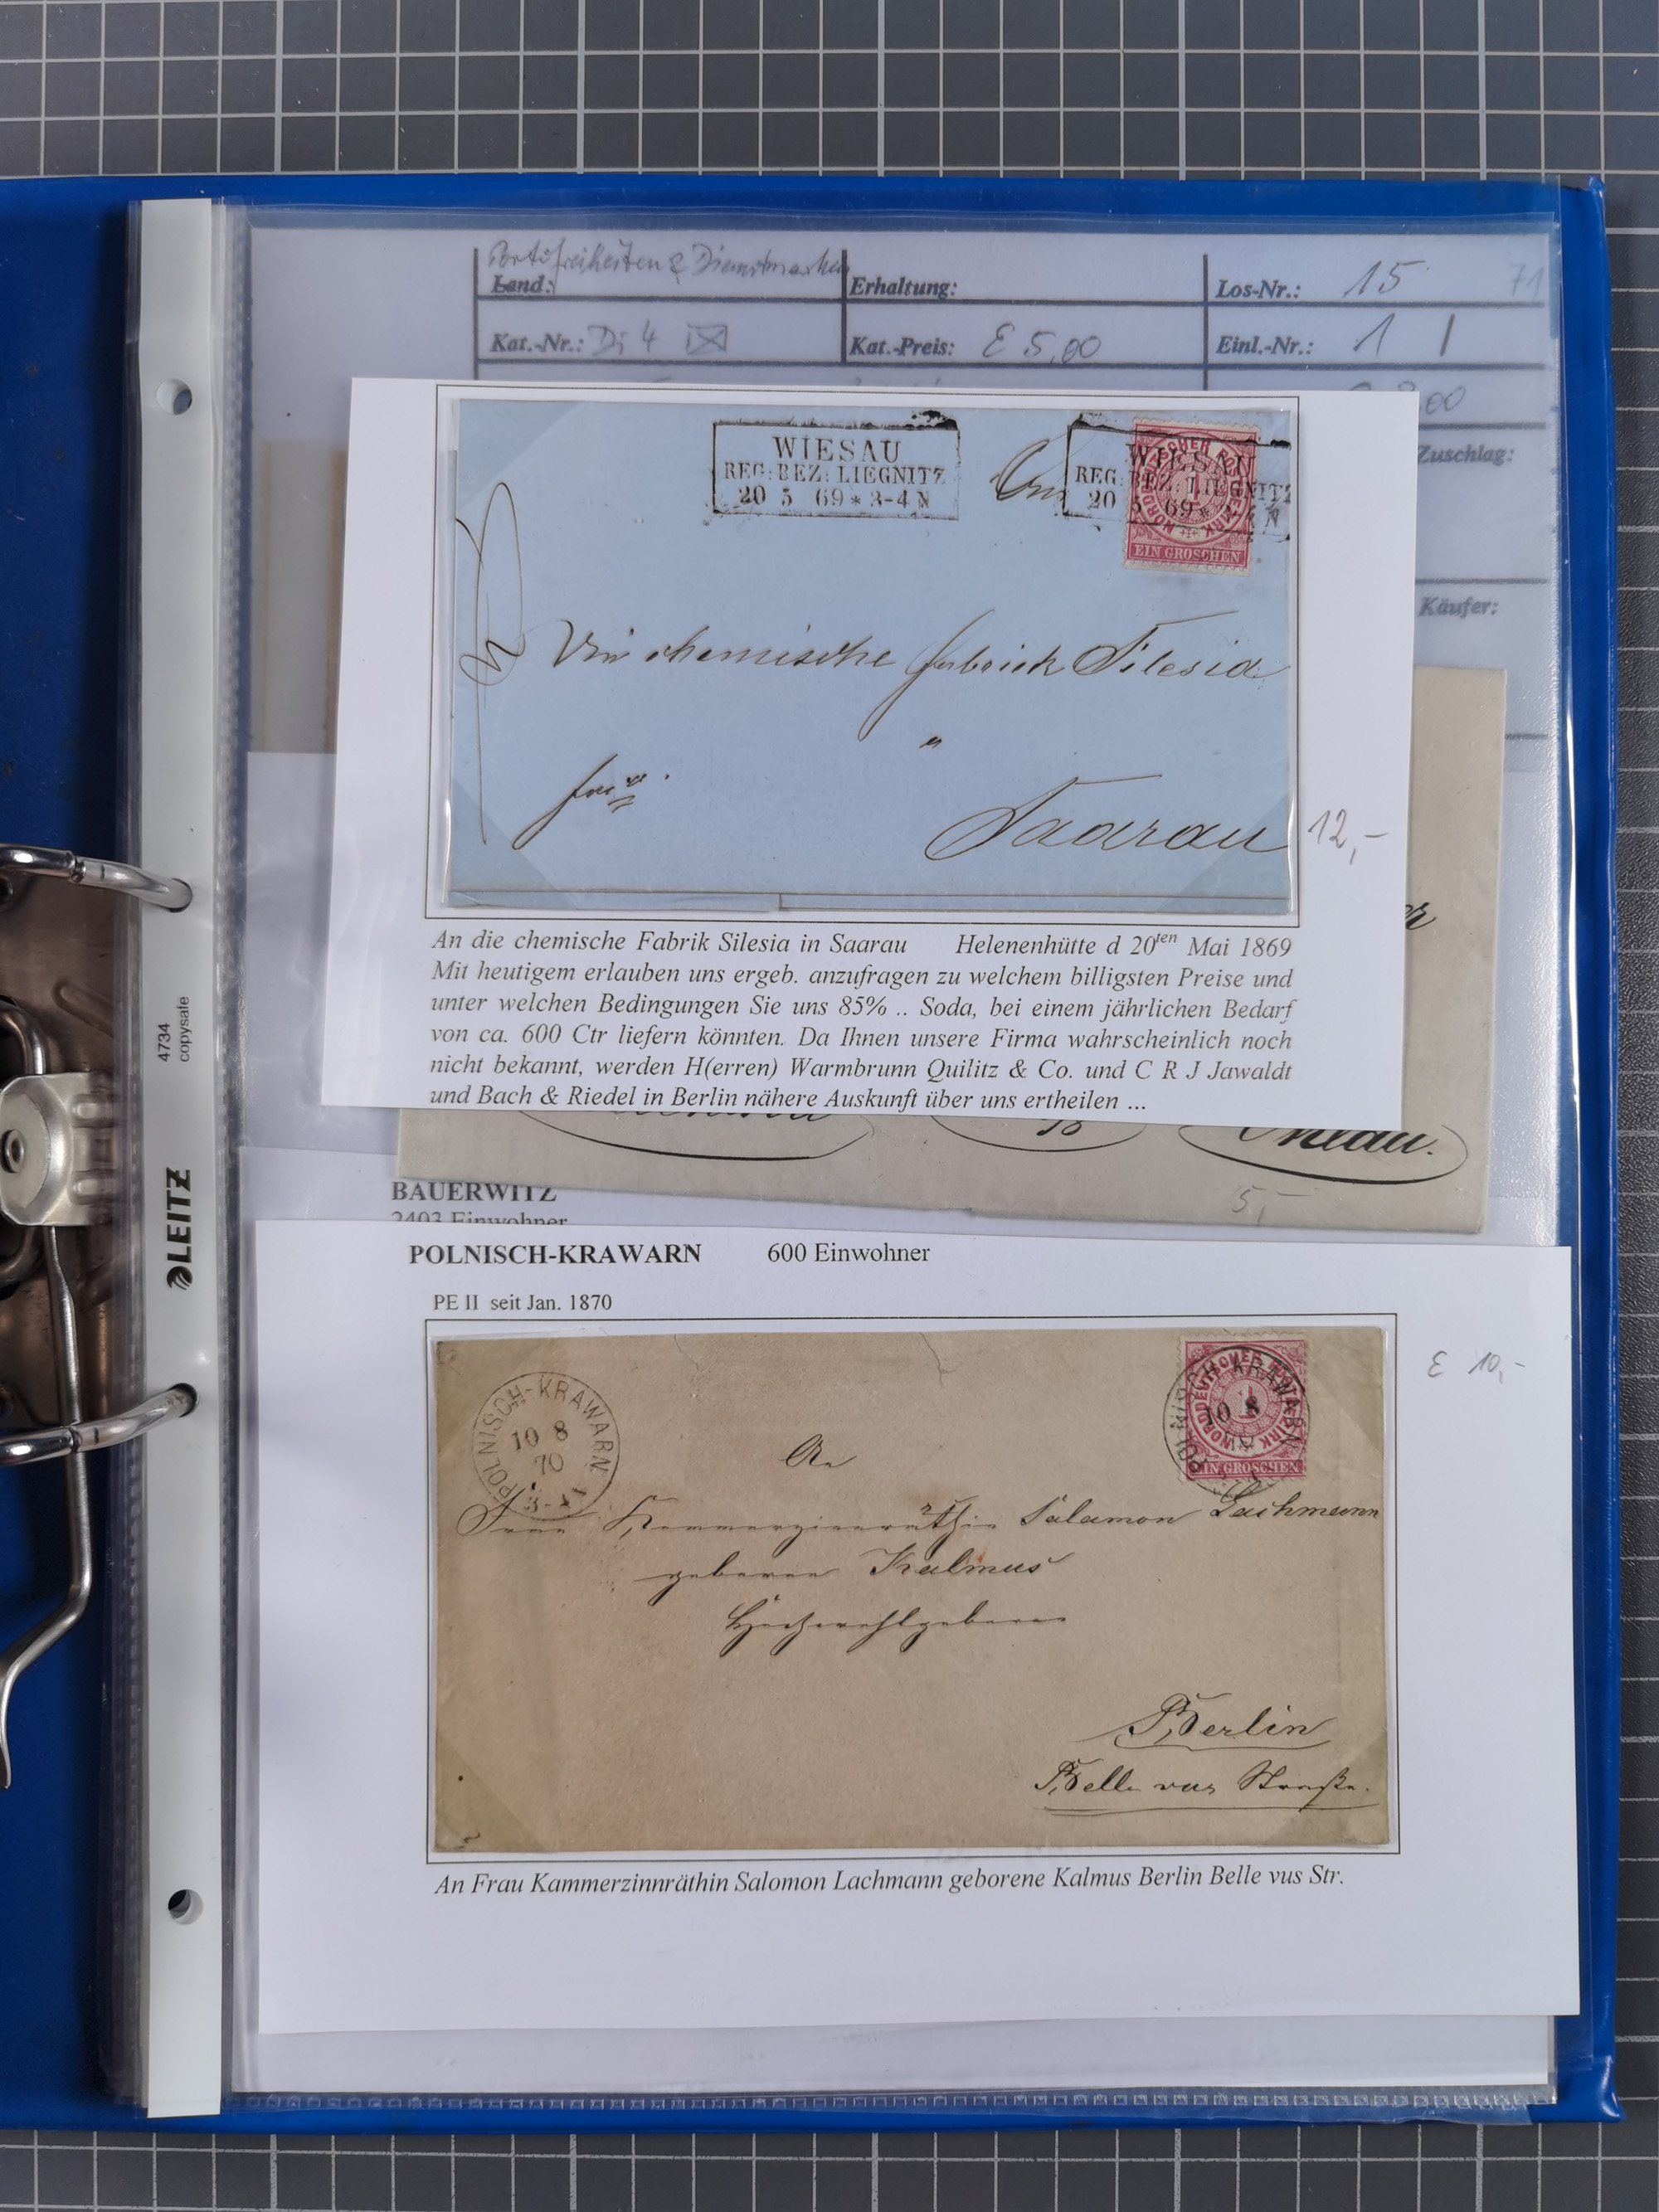 Portofreiheiten & Dienstmarken
Land:
Erhaltung:
Los-Nr.: 15
71
Kat.-Nr.: Di 4
Kat.-Preis: € 5,00
Einl.-Nr.: 1 |
00
Zuschlag:
Käufer:
WIESAU
REG: BEZ: LIEGNITZ
20 5 69 * 3-4 N
An
WIESAU
REG: BEZ: LIEGNITZ
20 5 69 *
NORDDEUTSCHER POSTBEZIRK
1
EIN GROSCHEN
Die chemische Fabrick Silesia
Saarau
12,-
An die chemische Fabrik Silesia in Saarau Helenenhütte d 20ten Mai 1869
Mit heutigem erlauben uns ergeb. anzufragen zu welchem billigsten Preise und
unter welchen Bedingungen Sie uns 85% .. Soda, bei einem jährlichen Bedarf
von ca. 600 Ctr liefern könnten. Da Ihnen unsere Firma wahrscheinlich noch
nicht bekannt, werden H(erren) Warmbrunn Quilitz & Co. und C R J Jawaldt
und Bach & Riedel in Berlin nähere Auskunft über uns ertheilen ...
Ohlau.
5,-
BAUERWITZ
2403 Einwohner
POLNISCH-KRAWARN 600 Einwohner
PE II seit Jan. 1870
€ 10,-
POLNISCH-KRAWARN
10 8
70
POLNISCH-KRAWARN
10 8
70
NORDDEUTSCHER POSTBEZIRK
1
EIN GROSCHEN
An
Frau Kommerzienräthin Salamon Lachmann
geborene Kalmus
Hochwohlgeboren
Berlin
Belle vus Straße.
An Frau Kammerzinnräthin Salomon Lachmann geborene Kalmus Berlin Belle vus Str.
4734
copysafe
LEITZ